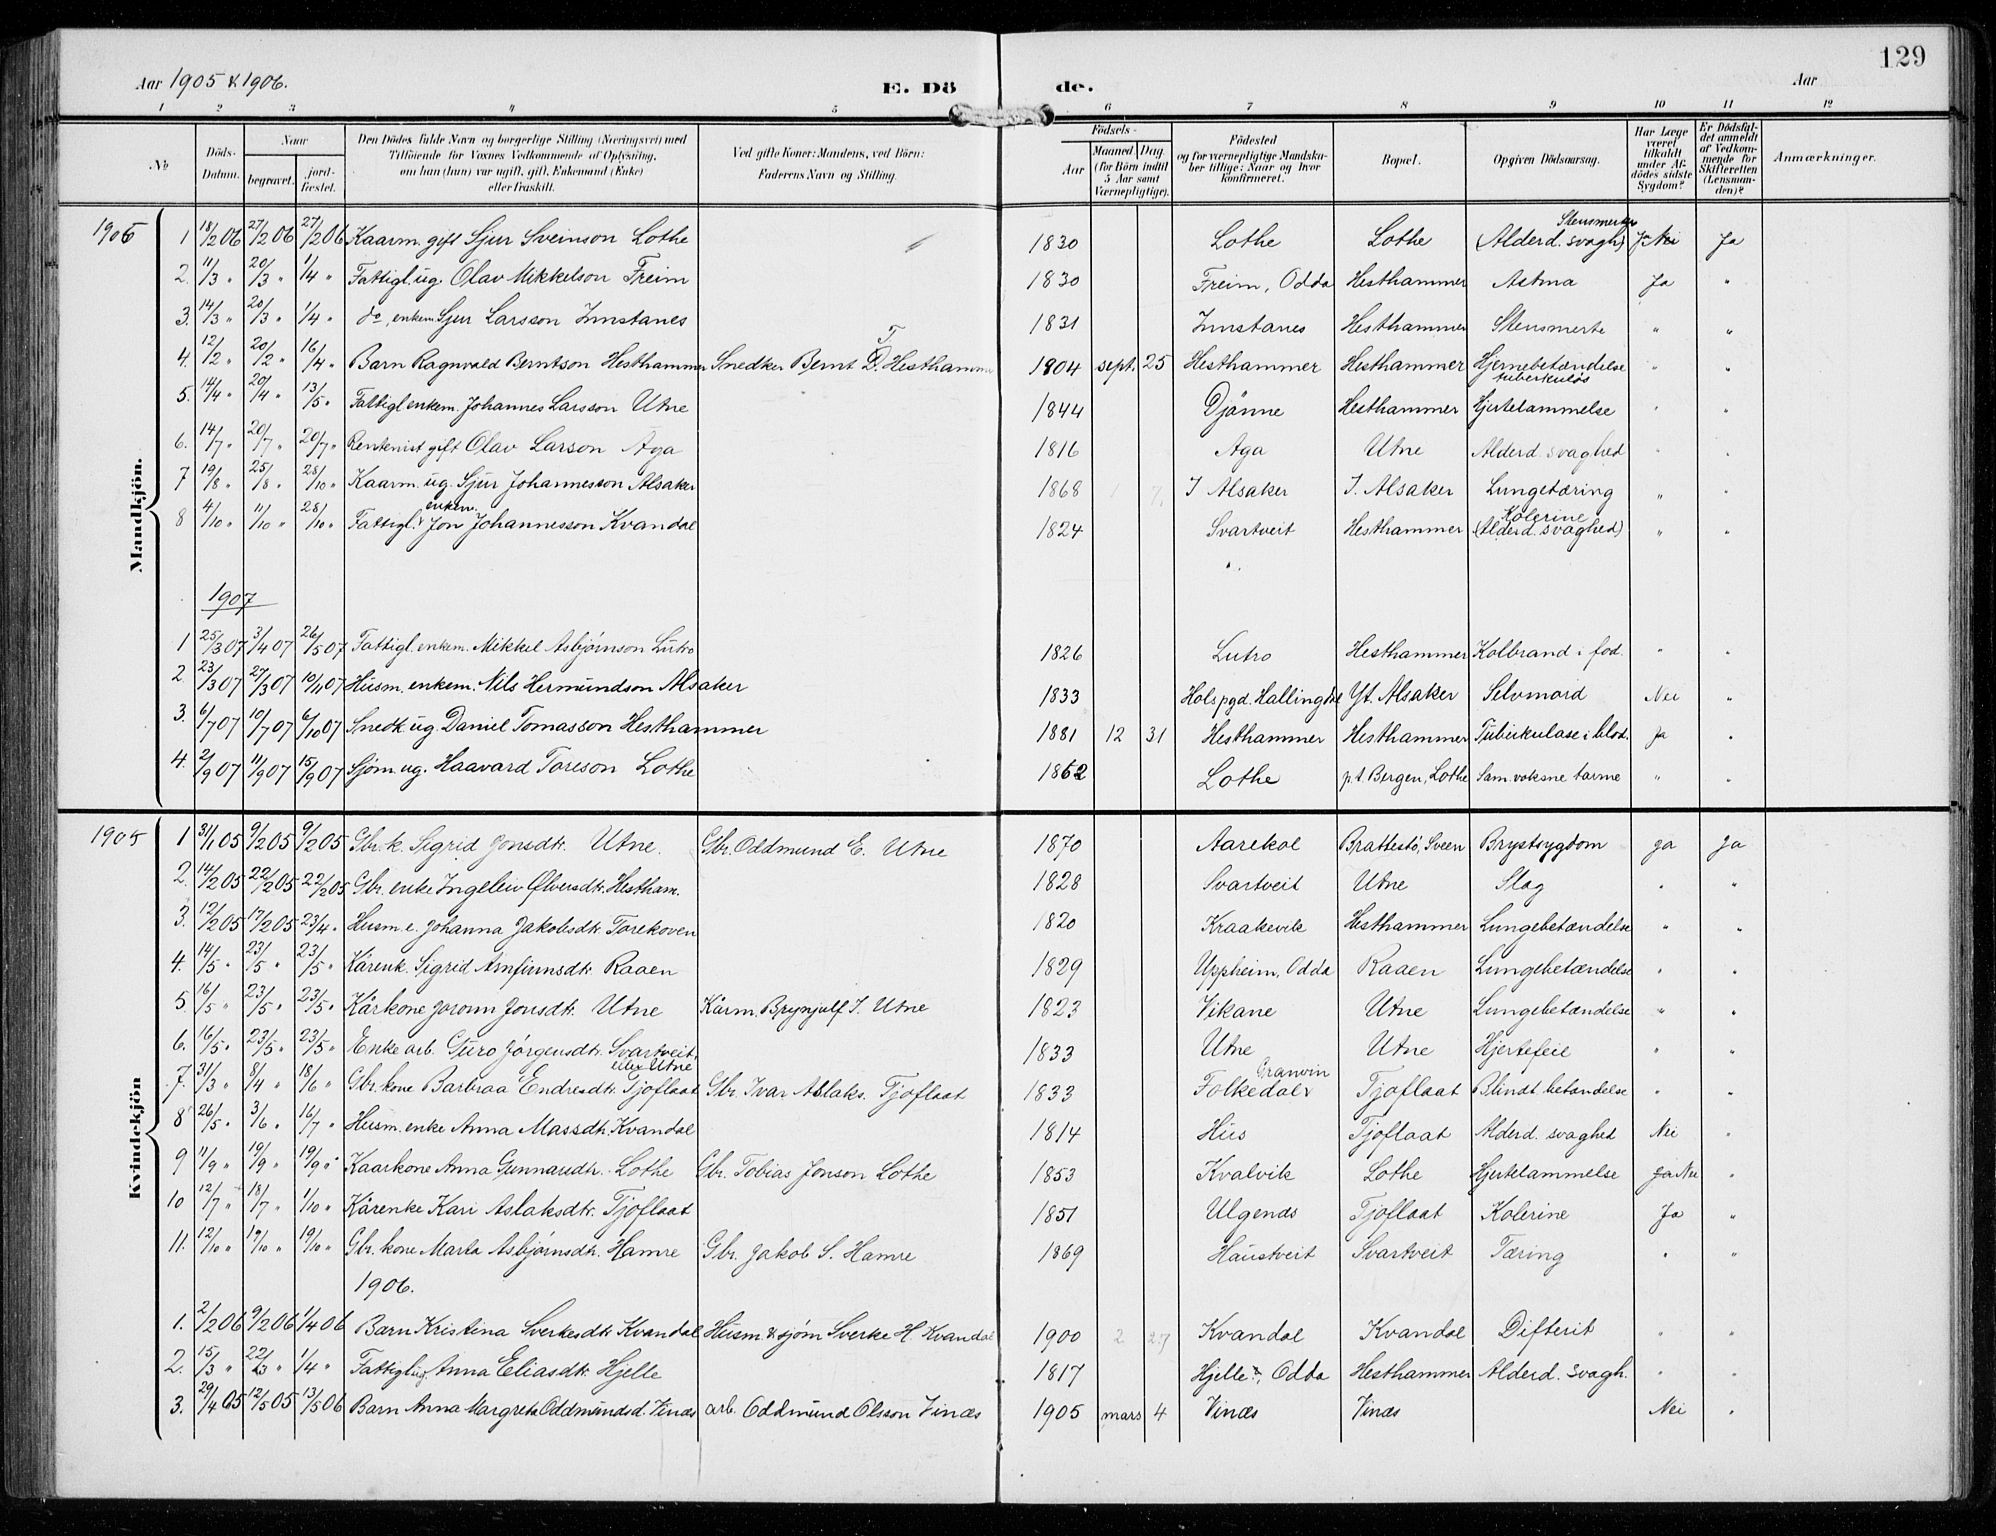 129
Aar 1905 & 1906. E. Dö de. Aar
1 2 3 4 5 6 7 8 9 10 11 12
No Döds-Datum. Naar begravet. jord-fæstet. Den Dödes fulde Navn og borgerlige Stilling (Næringsvei) med Tilföiende for Voxnes Vedkommende af Oplysning, om han (hun) var ugift, gift, Enkemand (Enke) eller fraskilt. Ved gifte Koner: Mandens, ved Börn: Faderens Navn og Stilling. Födsels- Aar Maaned Dag. (for Börn indtil 5 Aar samt Værnepligtige). Födested og for værnepligtige Mandskaber tillige: Naar og hvor konfirmeret. Bopæl. Opgiven Dödsaarsag. Har Læge været tilkaldt under Afdödes sidste Sygdom? Er Dödsfaldet anmeldt af Vedkommende for Skifteretten (Lensmanden)? Anmærkninger.
Mandkjön.
1906 1 18/2 06 27/2 06 27/2 06 Kaarm. gift Sjur Sveinson Lothe 1830 Lothe Lothe Stensmerter (Alderd. svagh) Ja Nei Ja
2. 11/3 " 20/3 " 1/4 " Fattigl. ug. Olav Mikkelson Freim 1830 Freim, Odda Hesthammer Astma Ja "
3. 14/3 " 20/3 " 1/4 " do, enkem. Sjur Larsson Innstanes 1831 Innstanes Hesthammer Stensmerte " "
4. 12/2 " 20/2 " 16/4 " Barn Ragnvald Berntson Hesthammer Snedker Bernt T. D. Hesthammer 1904 sept. 25 Hesthammer Hesthammer Hjernebetændelse tuberkuløs " "
5. 14/4 " 20/4 " 13/5 " Fattigl. enkem. Johannes Larsson Utne 1844 Djönne Hesthammer Hjertelammelse " "
6. 14/7 " 20/7 " 20/7 " Rentenist gift Olav Larson Aga 1816 Aga Utne Alderd. svaghed " "
7 19/8 " 25/8 " 28/10 " Kaarm. ug. Sjur Johannesson Alsaker 1868 I Alsaker I. Alsaker Lungetæring " "
8 4/10 " 11/10 " 28/10 " Fattigl. enkem. Jon Johannesson Kvandal 1824 Svartveit Hesthammer Kolerine (Alderd. svaghed) " "
1907
1 25/3 07 3/4 07 26/5 07 Fattigl. enkem. Mikkel Asbjørnson Lutro 1826 Lutro Hesthammer Kolbrand i fod. " "
2. 23/3 07 27/3 07 10/4 07 Husm. enkem. Nils Hermundson Alsaker 1833 Hols pgd. Hallingdal Yt. Alsaker Selvmord Nei "
3. 6/7 07 10/7 07 6/10 07 Snedk. ug. Daniel Tomasson Hesthammer 1881 12 31 Hesthammer Hesthammer Tuberkulose i blod. Ja "
4. 2/9 07 11/9 07 15/9 07 Sjöm. ug. Haavard Toreson Lothe 1862 Lothe p.t. Bergen, Lothe Sam. voksne tarme " "
Kvindekjön
1905 1 31/1 05 9/2 05 9/2 05 Gbr. k. Sigrid Jonsdtr. Utne. Gbr. Oddmund E. Utne 1870 Aarekol Brattestö, Sveen Brystsygdom ja Ja
2. 14/2 05 22/2 05 22/2 05 Gbr. enke Ingeleiv Ølversdtr. Hestham. 1828 Svartveit Utne Slag " "
3. 12/2 05 17/2 05 23/4 " Husm. e. Johanna Jakobsdtr. Torekoven 1820 Kraakevik Hesthammer Lungebetændelse " "
4. 14/5 " 23/5 " 23/5 " Kårenk. Sigrid Arnfinnsdtr. Raaen 1829 Uppheim, Odda Raaen Lungebetændelse " "
5 16/5 " 23/5 " 23/5 " Kårkone Joronn Jonsdtr. Utne Kårm. Brynjulf I. Utne 1823 Vikane Utne Lungebetændelse " "
6. 16/5 " 23/5 " 23/5 " Enke arb. Guro Jørgensdtr. Svartveit, Utne 1833 Utne Utne Hjertefeil " "
7. 31/3 " 8/4 " 18/6 " Gbr. kone Barbraa Endresdtr. Tjoflaat Gbr. Ivar Aslaks. Tjoflaat 1833 Folkedal Granvin Tjoflaat Blindt. betændelse " "
8 26/5 " 3/6 " 16/7 " Husm. enke Anna Massdtr. Kvandal 1814 Hus Tjoflaat Alderd. svaghed Nei "
9 11/9 " 19/9 " 19/9 " Kaarkone Anna Gunnarsdtr. Lothe Gbr. Tobias Jonson Lothe 1853 Kvalvik Lothe Hjertelammelse Ja Nei "
10 12/7 " 18/7 " 1/10 " Kårenke Kari Aslaksdtr. Tjoflaat 1851 Ulgends Tjoflaat Kolerine Ja "
11. 12/10 " 19/10 " 19/10 " Gbr. kone Marta Asbjørnsdtr. Hamre Gbr. Jakob S. Hamre 1869 Haustveit Svartveit Tæring " "
1906.
1. 2/2 06 9/2 06 1/4 06 Barn Kristina Sverkesdtr. Kvandal Husm. & sjøm Sverke H. Kvandal 1900 2 27 Kvandal Kvandal Difterit " "
2. 15/3 " 22/3 " 1/4 " Fattigl. ug. Anna Eliasdtr. Hjelle 1817 Hjelle, Odda Hesthammer Alderd. svagh. " "
3. 29/4 05 12/5 05 13/5 06 Barn Anna Margreta Oddmundsd. Vinæs arb. Oddmund Olsson Vinæs 1905 mars 4 Vinæs Vinæs Nei "